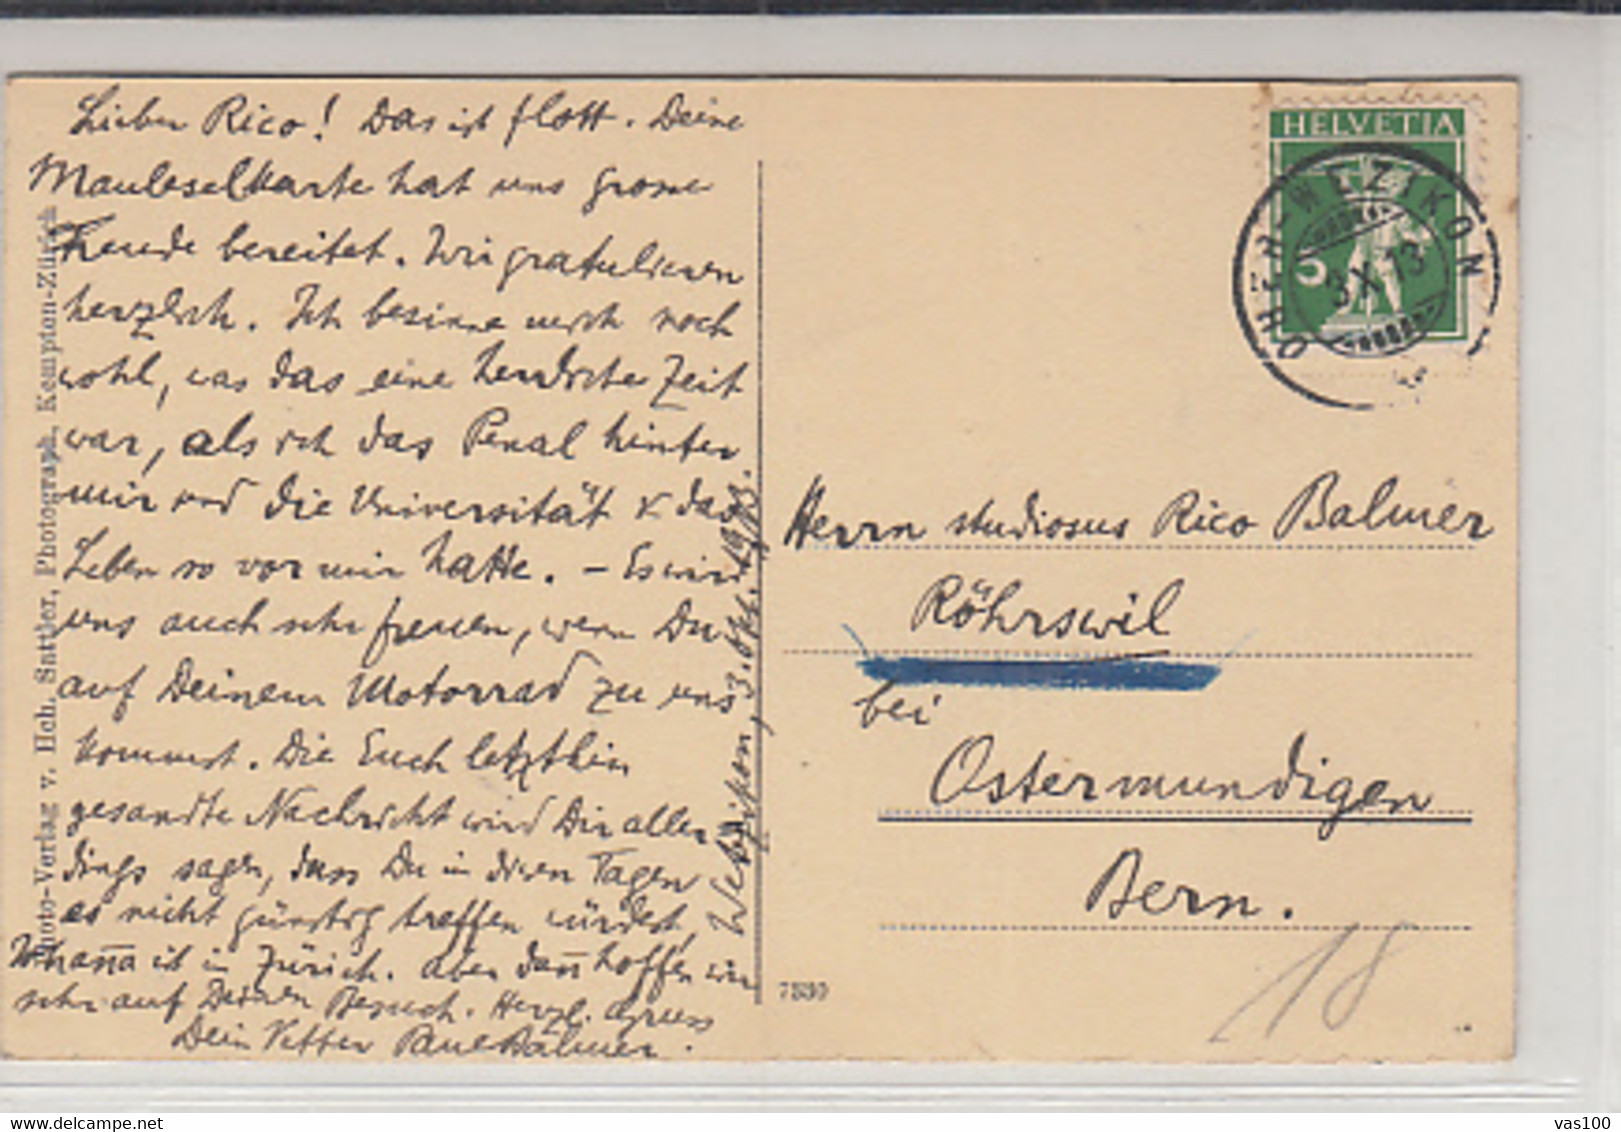 Lieber Rico! Das ist flott. Deine
Mauleselkarte hat uns grosse
Freude bereitet. Wir gratulieren
herzlich. Ich besinne mich noch
wohl, was das eine herrliche Zeit
war, als ich das Penal hinter
mir und die Universität & das
Leben so vor mir hatte. – Es wird
uns auch sehr freuen, wenn Du
auf Deinem Motorrad zu uns
kommst. Die Euch letzthin
gesandte Nachricht wird Dir aller-
dings sagen, dass Du in diesen Tagen
es nicht günstig treffen würdest,
ist in Zürich. Aber dann hoffen wir
sehr auf Deinen Besuch. Herzl. Gruss
Dein Vetter Paul Balmer.
Wetzikon, 3. Okt. 1913.
Photo-Verlag v. Hch. Suttber, Photograph, Kempten-Zürich
HELVETIA
5
OBER-WEZIKON
3 X 13
Herrn studiosus Rico Balmer
Röhrswil
bei
Ostermundigen
Bern.
7330
18
vas100